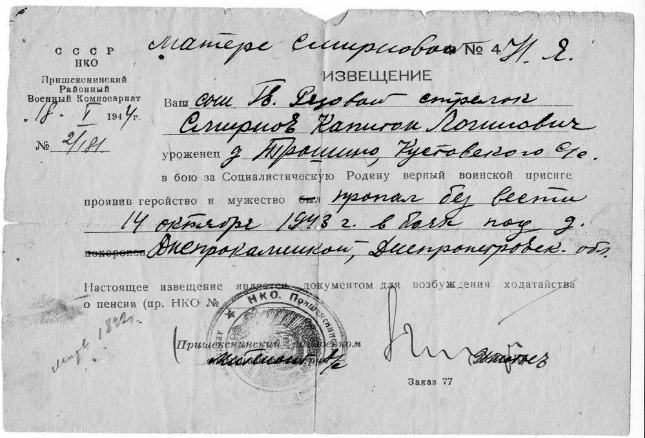 Матере Смирновой № 4 Н. Я.
СССР
НКО
Пришекснинский
Районный
Военный Комиссариат
18. I 1944г.
№ 2/181
ИЗВЕЩЕНИЕ
Ваш сын Гв. Рядовой стрелок
Смирнов Капитон Логинович
уроженец д Трошино, Кустовского с/с.
в бою за Социалистическую Родину верный воинской присяге
проявив геройство и мужество был пропал без вести
14 октября 1943 г. в боях под д.
похоронен Днепрокаменкой, Днепропетровск. обл.
Настоящее извещение является документом для возбуждения ходатайства
о пенсии (пр. НКО №
НКО. Пришекснин
Пришекснинский
Заказ 77